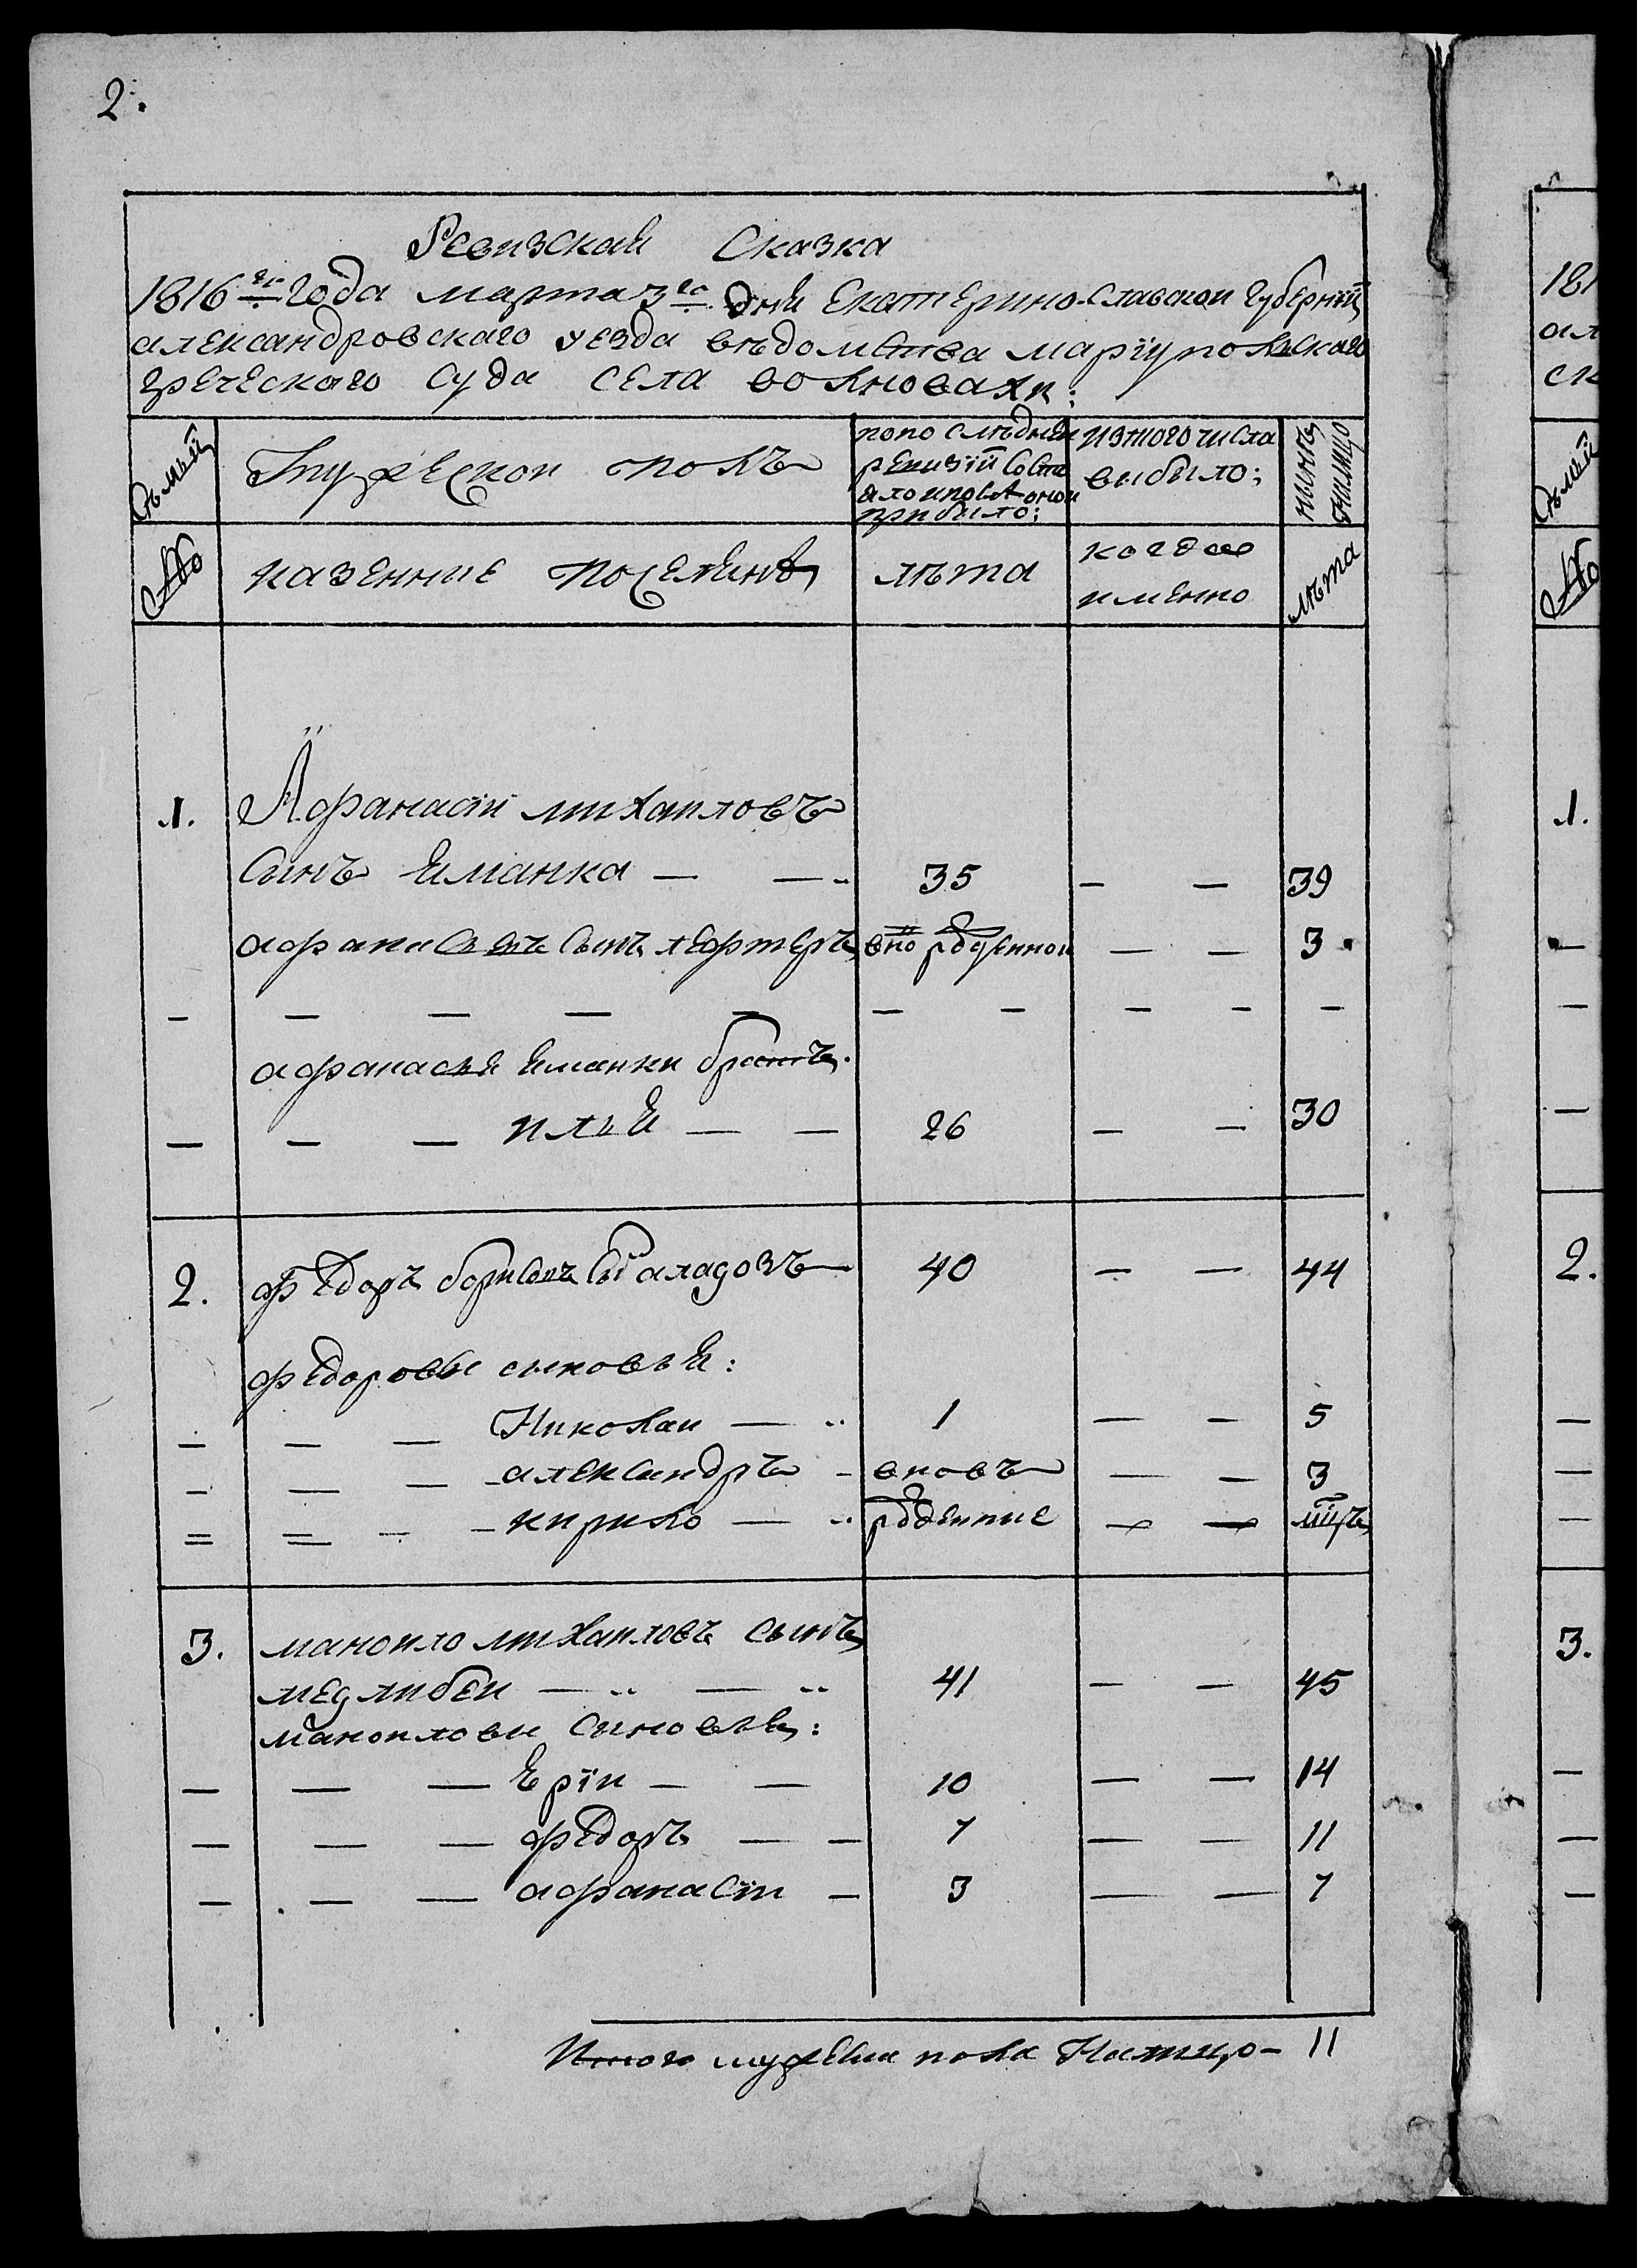 2.
Ревизская Сказка
1816го года марта 3го дня Екатерино-славской губернїй
александровскаго уезда вѣдомства марїупольскаго
греческаго суда села волновахи:
Сѣмьи
Мужеской полъ
по последней ревизїй состояло и после оной прибыло:
из того числа выбыло:
ныне на лицо
№
казенные поселяне
лѣта
когда именно
лѣта
1. Афанасїй михаиловъ
сынъ Яманка — — 35 — — 39
афанасьевъ сынъ лефтеръ вно рожденной — — 3.
— — — — — — — — — —
афанасья яманки братъ
— — — илья — — 26 — — 30
2. федоръ борисовъ сынъ 40 — — 44
федоровы сыновья:
— — — Николай — 1 — — 5
— — — александръ — вновъ — — 3
— — — кирило — рожденные — —
3. маноило михаиловъ сынъ
— — 41 — — 45
маноиловы сыновья:
— — — Юрїи — — 10 — — 14
— — — федоръ — — 7 — — 11
— — — афанасїи — 3 — — 7
Итого мужеска пола Налицо — 11
181
ал
ск
Сѣмьи
№
1.
2.
3.